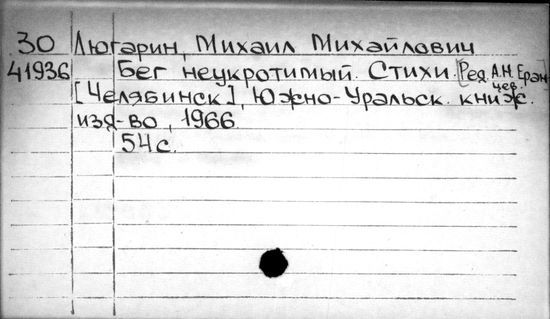 30 Люгарин, Михаил Михайлович
41936 Бег неукротимый. Стихи. [Ред. А.Н. Еранцев.
[Челябинск], Южно-Уральск. книж.
изд-во, 1966.
54 с.